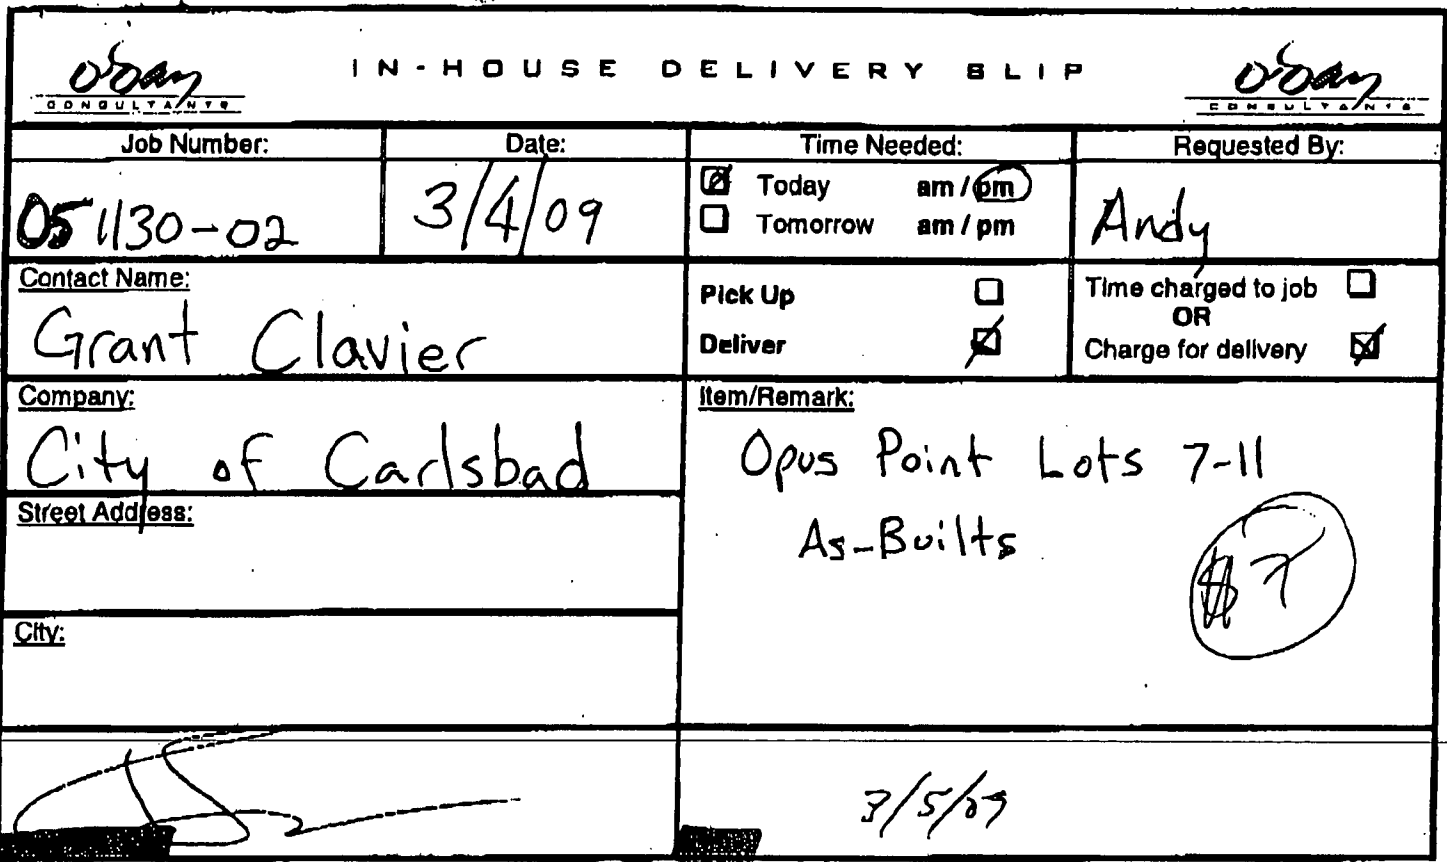 O'Day CONSULTANTS
IN-HOUSE DELIVERY SLIP
O'Day CONSULTANTS
Job Number:
051130-02
Date:
3/4/09
Time Needed:
Today am / pm
Tomorrow am / pm
Requested By:
Andy
Contact Name:
Grant Clavier
Pick Up
Deliver
Time charged to job
OR
Charge for delivery
Company:
City of Carlsbad
Street Address:
City:
Item/Remark:
Opus Point Lots 7-11
As-Builts
$7
3/5/09